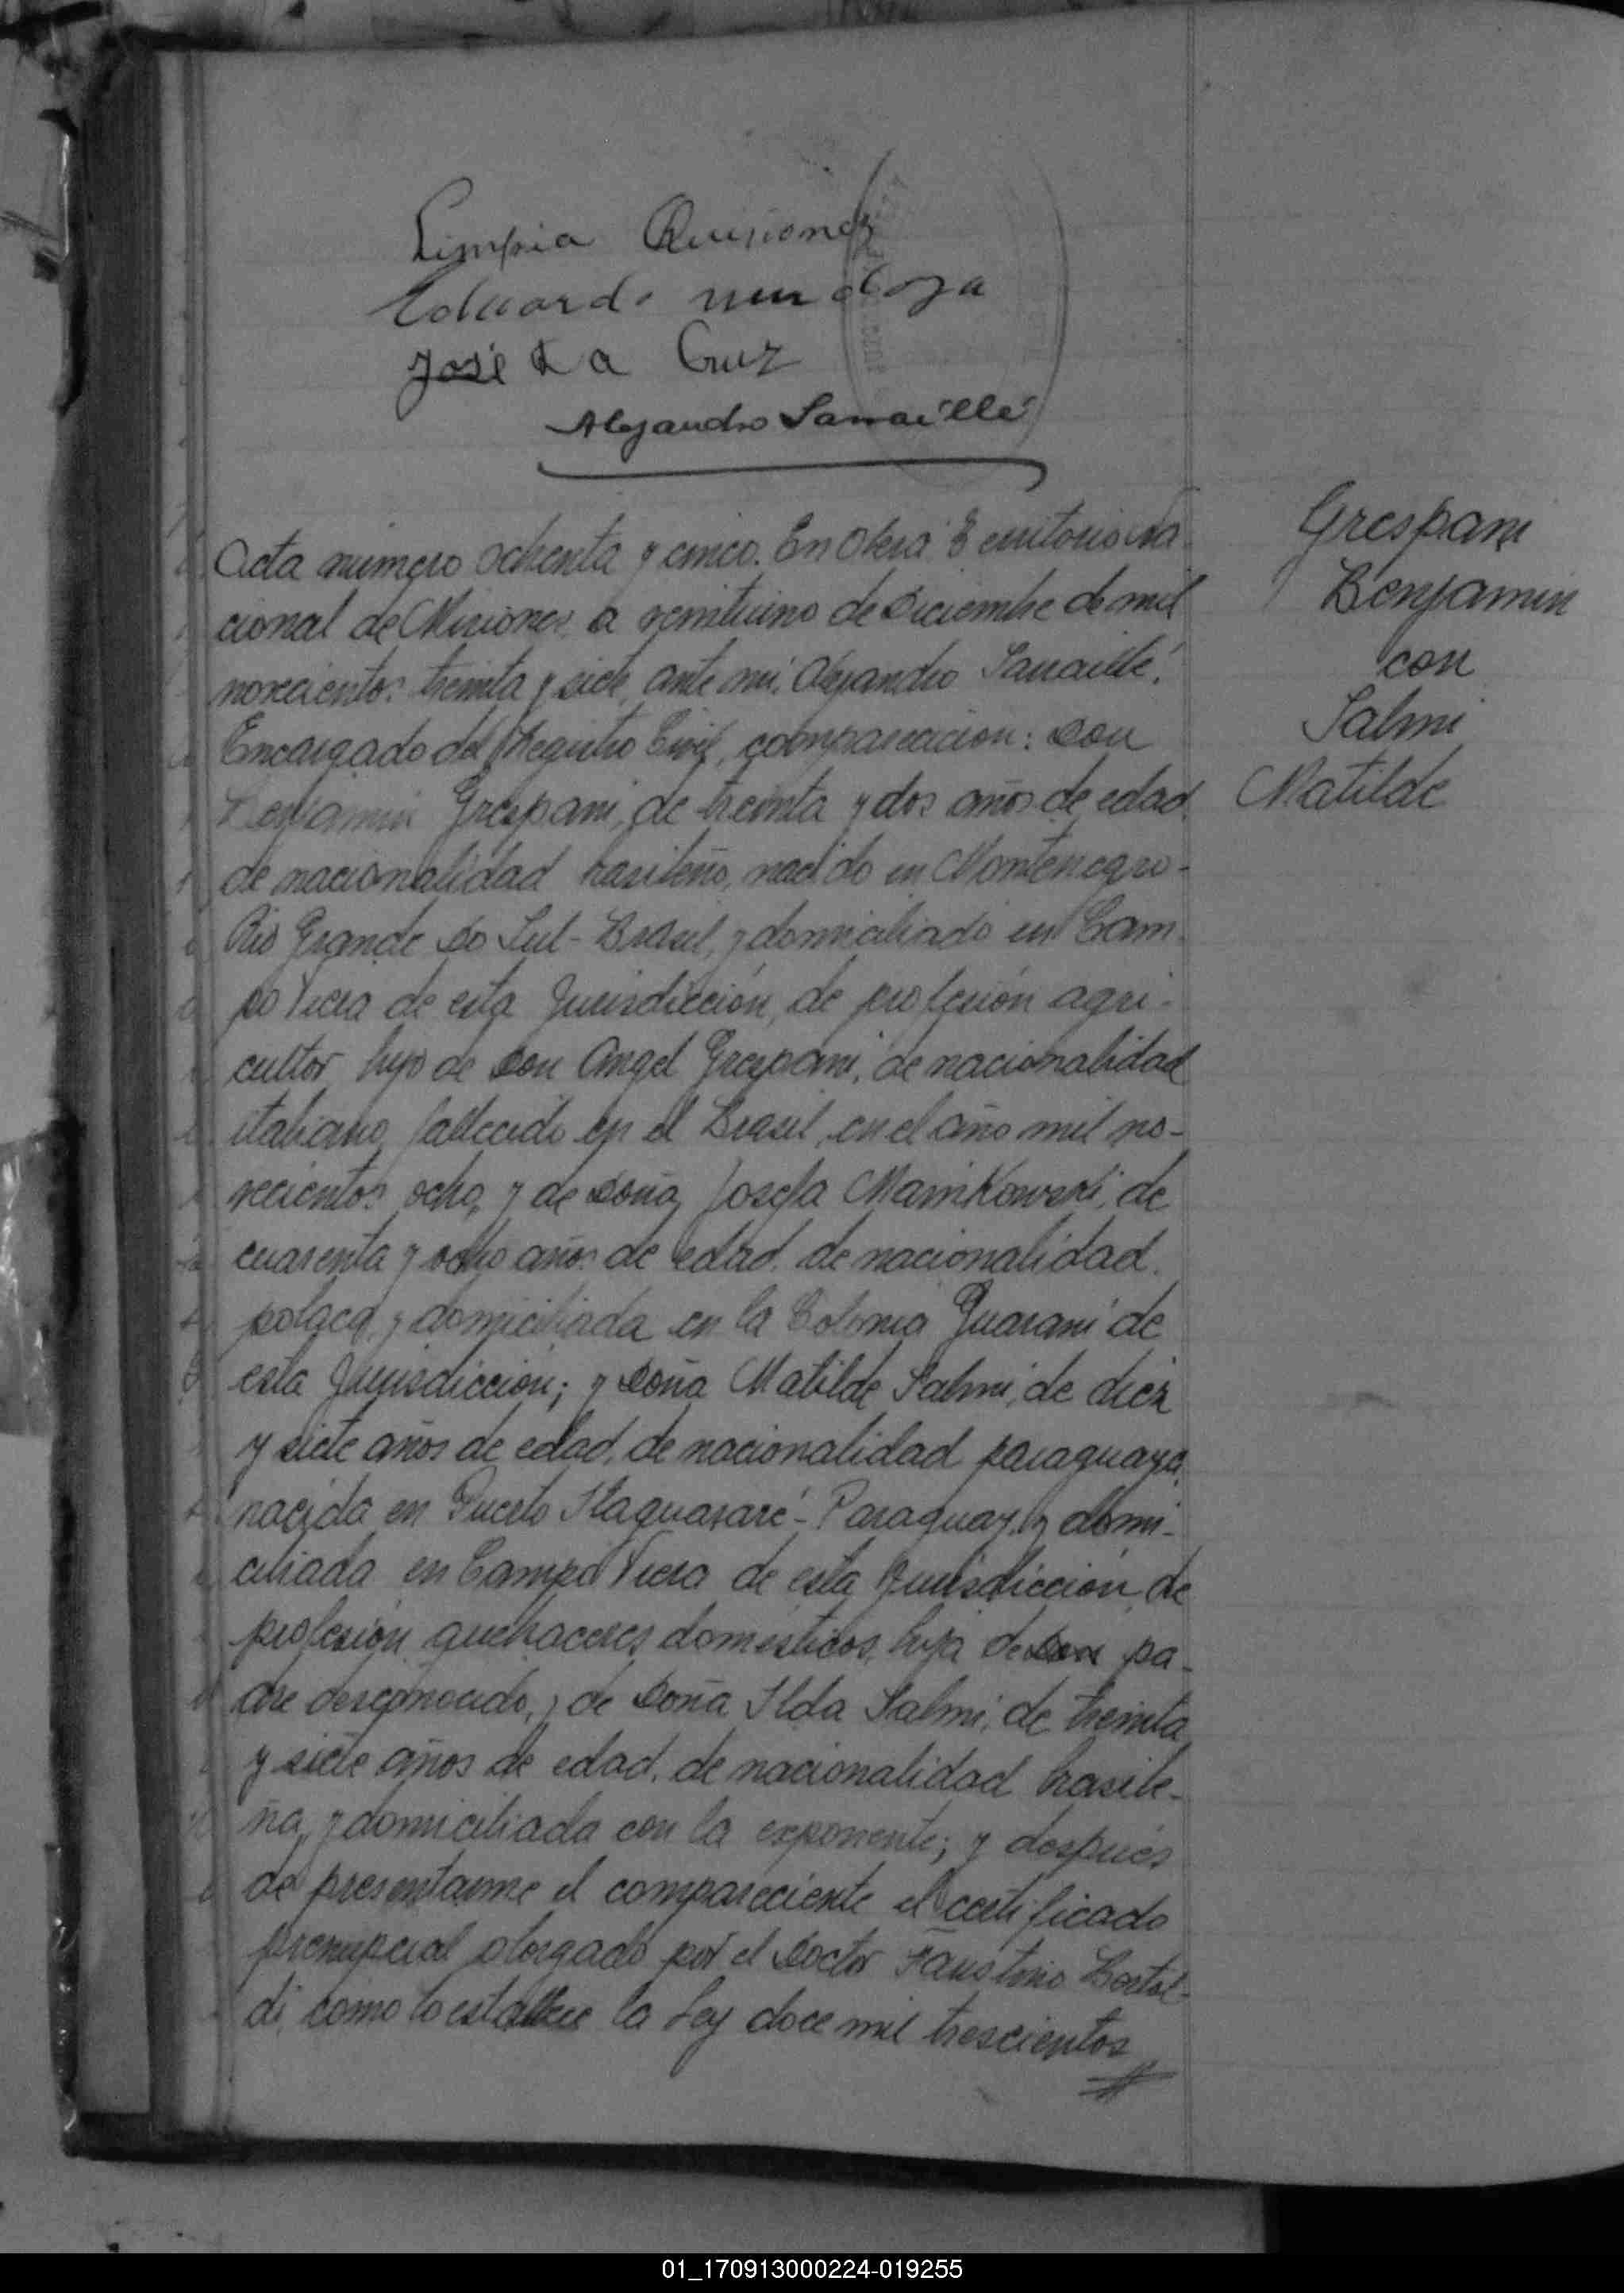 Limpia Quiñonez
Eduardo mendoza
José La Cruz
Alejandro Sarraillé
Grespani
Benjamin
con
Salmi
Matilde
Acta número ochenta y cinco. En Oberá Territorio Na-
cional de Misiones, a veintiuno de Diciembre de mil
novecientos treinta y siete, ante mí, Alejandro Sarraillé,
Encargado del Registro Civil, comparecieron: Don
Benjamin Grespani, de treinta y dos años de edad,
de nacionalidad brasileño, nacido en Montenegro-
Rio Grande Do Sul-Brasil, y domiciliado en Cam-
po Viera de esta Jurisdicción, de profesión agri-
cultor, hijo de Don Angel Grespani, de nacionalidad
italiano, fallecido en el Brasil, en el año mil no-
vecientos ocho, y de Doña Josefa Manikowski, de
cuarenta y ocho años de edad, de nacionalidad
polaca, y domiciliada en la Colonia Guaraní de
esta Jurisdicción; y Doña Matilde Salmi, de diez
y siete años de edad, de nacionalidad paraguaya,
nacida en Puerto - Paraguay, y domi-
ciliada en Campo Viera de esta Jurisdicción, de
profesión quehaceres domésticos, hija de pa-
dre desconocido, y de Doña Ilda Salmi, de treinta
y siete años de edad, de nacionalidad brasile-
ña, y domiciliada con la exponente; y después
de presentarme el compareciente el certificado
prenupcial otorgado por el Doctor Faustino Bortol-
di, como lo establece la Ley doce mil trescientos
01_170913000224-019255